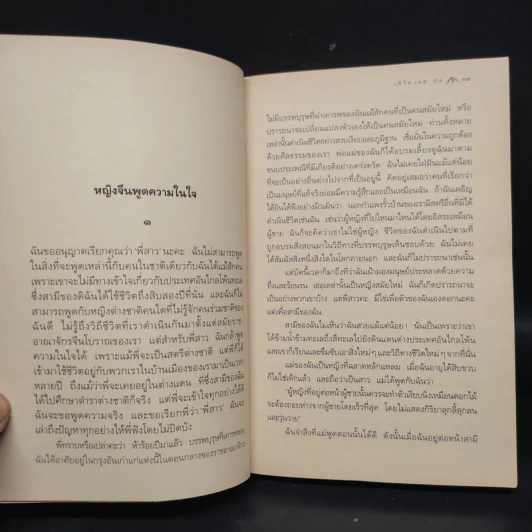 หญิงจีนพูดความในใจ
๑
ฉันขออนุญาตเรียกคุณว่า 'พี่สาว' นะคะ ฉันไม่สามารถพูด
ในสิ่งที่จะพูดเหล่านี้กับคนในชาติเดียวกับฉันได้แม้สักคน
เพราะเขาจะไม่มีทางเข้าใจเกี่ยวกับประเทศอันไกลโพ้นทะเล
ซึ่งสามีของดิฉันได้ใช้ชีวิตถึงสิบสองปีที่นั่น และฉันก็ไม่
สามารถพูดกับหญิงต่างชาติคนใดที่ไม่รู้จักคนร่วมชาติของ
ฉันดี ไม่รู้ถึงวิถีชีวิตที่เราดำเนินกันมาตั้งแต่สมัยราช-
อาณาจักรจีนโบราณของเรา แต่สำหรับพี่สาว ฉันกล้าพูด
ความในใจได้ เพราะแม้พี่จะเป็นสตรีต่างชาติ แต่พี่ก็ได้
เข้ามาใช้ชีวิตอยู่กับพวกเราในบ้านเมืองของเราเป็นเวลา
หลายปี ถึงแม้ว่าพี่จะเคยอยู่ในต่างแดน ที่ซึ่งสามีของฉัน
ได้ไปศึกษาตำราต่างชาติก็จริง แต่พี่จะเข้าใจทุกอย่างได้
ฉันจะขอพูดความจริง และขอเรียกพี่ว่า 'พี่สาว' ฉันจะ
เล่าถึงปัญหาทุกอย่างให้พี่ฟังโดยไม่ปิดบัง
พี่ทราบหรือเปล่าคะว่า ห้าร้อยปีมาแล้ว บรรพบุรุษที่เคารพของ
ฉันได้อาศัยอยู่ในกรุงอันเก่าแก่แห่งนี้ในตอนกลางของราชอาณาจักร
ไม่มีบรรพบุรุษที่น่าเคารพของฉันแม้สักคนที่เป็นคนสมัยใหม่ หรือ
ปรารถนาจะเปลี่ยนแปลงตัวเองให้เป็นคนสมัยใหม่ ท่านทั้งหลาย
เหล่านั้นดำเนินชีวิตอย่างสงบเงียบและภูมิฐาน เชื่อมั่นในความถูกต้อง
ด้วยศีลธรรมของเรา พ่อแม่ของฉันก็ได้อบรมเลี้ยงดูฉันมาตาม
ขนบประเพณีที่มีเกียรติอย่างเคร่งครัด ฉันไม่เคยใฝ่ฝันแม้แต่น้อย
ที่จะเป็นอย่างอื่นต่างไปจากที่เป็นอยู่นี้ คิดอยู่เสมอว่าคนที่เรียกว่า
เป็นมนุษย์ที่แท้จริงย่อมมีความรู้สึกและเป็นเหมือนฉัน ถ้าฉันเผอิญ
ได้ยินได้ฟังอย่างผิวเผินว่า นอกกำแพงรั้วบ้านของเรามีสตรีอื่นที่มิได้
ดำเนินชีวิตเช่นฉัน เช่นว่าผู้หญิงที่ไปไหนมาไหนได้โดยอิสระเหมือน
ผู้ชาย ฉันก็จะคิดว่าเขาไม่ใช่ผู้หญิง ชีวิตของฉันดำเนินไปตามที่
ถูกอบรมสั่งสอนมาในวิถีทางที่บรรพบุรุษเห็นชอบด้วย ฉันไม่เคย
ได้สัมผัสสิ่งหนึ่งสิ่งใดในโลกภายนอก และฉันก็ไม่ปรารถนาเช่นนั้น
แต่บัดนี้เวลาก็มาถึงที่ว่าฉันเฝ้ามองมนุษย์ประหลาดด้วยความ
พึงและร้อนรน เธอเหล่านั้นเป็นหญิงสมัยใหม่ ฉันก็เกิดปรารถนาจะ
เป็นอย่างพวกเขาบ้าง แต่พี่สาวคะ มิใช่เพื่อตัวของฉันเองดอกนะคะ
แต่เพื่อสามีของฉัน
สามีของฉันไม่เห็นว่าฉันสวยแม้แต่น้อย! นั่นเป็นเพราะว่าเขา
ได้ข้ามน้ำข้ามทะเลถึงสี่ทะเลไปยังดินแดนต่างประเทศอันไกลโพ้น
และเขาก็เรียนและชื่นชับเอาสิ่งใหม่ๆ และวิถีทางชีวิตใหม่ๆ จากที่นั่น
แม่ของฉันเป็นหญิงที่ฉลาดหลักแหลม เมื่อฉันอายุได้สิบขวบ
ก็ไม่ใช่เด็กแล้ว และถือว่าเป็นสาว แม่ได้พูดกับฉันว่า
"ผู้หญิงที่อยู่ต่อหน้าผู้ชายนั้นควรจะทำตัวเงียบนิ่งเหมือนดอกไม้
จะต้องถอยห่างจากผู้ชายโดยเร็วที่สุด โดยไม่แสดงกิริยาลุกลี้ลุกลน
และวุ่นวาย"
ฉันจำสิ่งที่แม่พูดตอนนั้นได้ดี ดังนั้นเมื่อฉันอยู่ต่อหน้าสามี